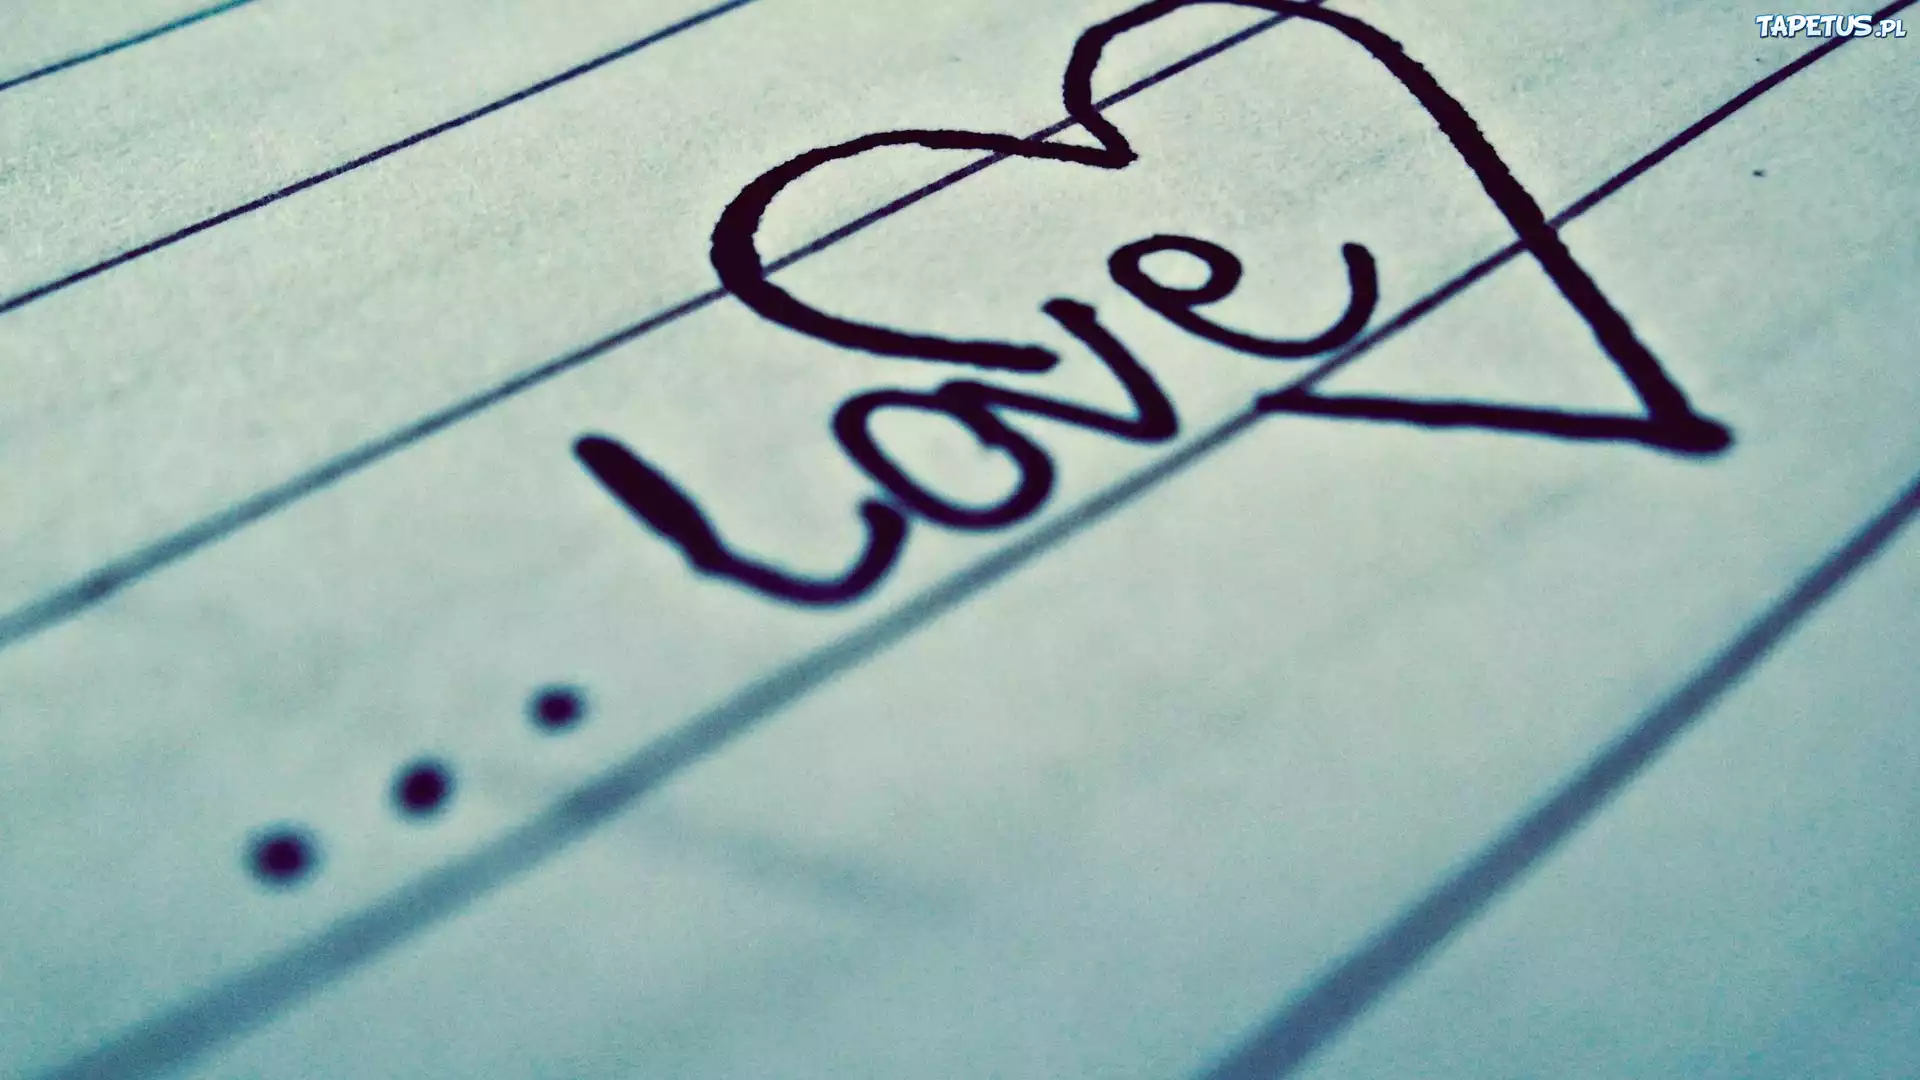 TAPETUS.PL
...Love